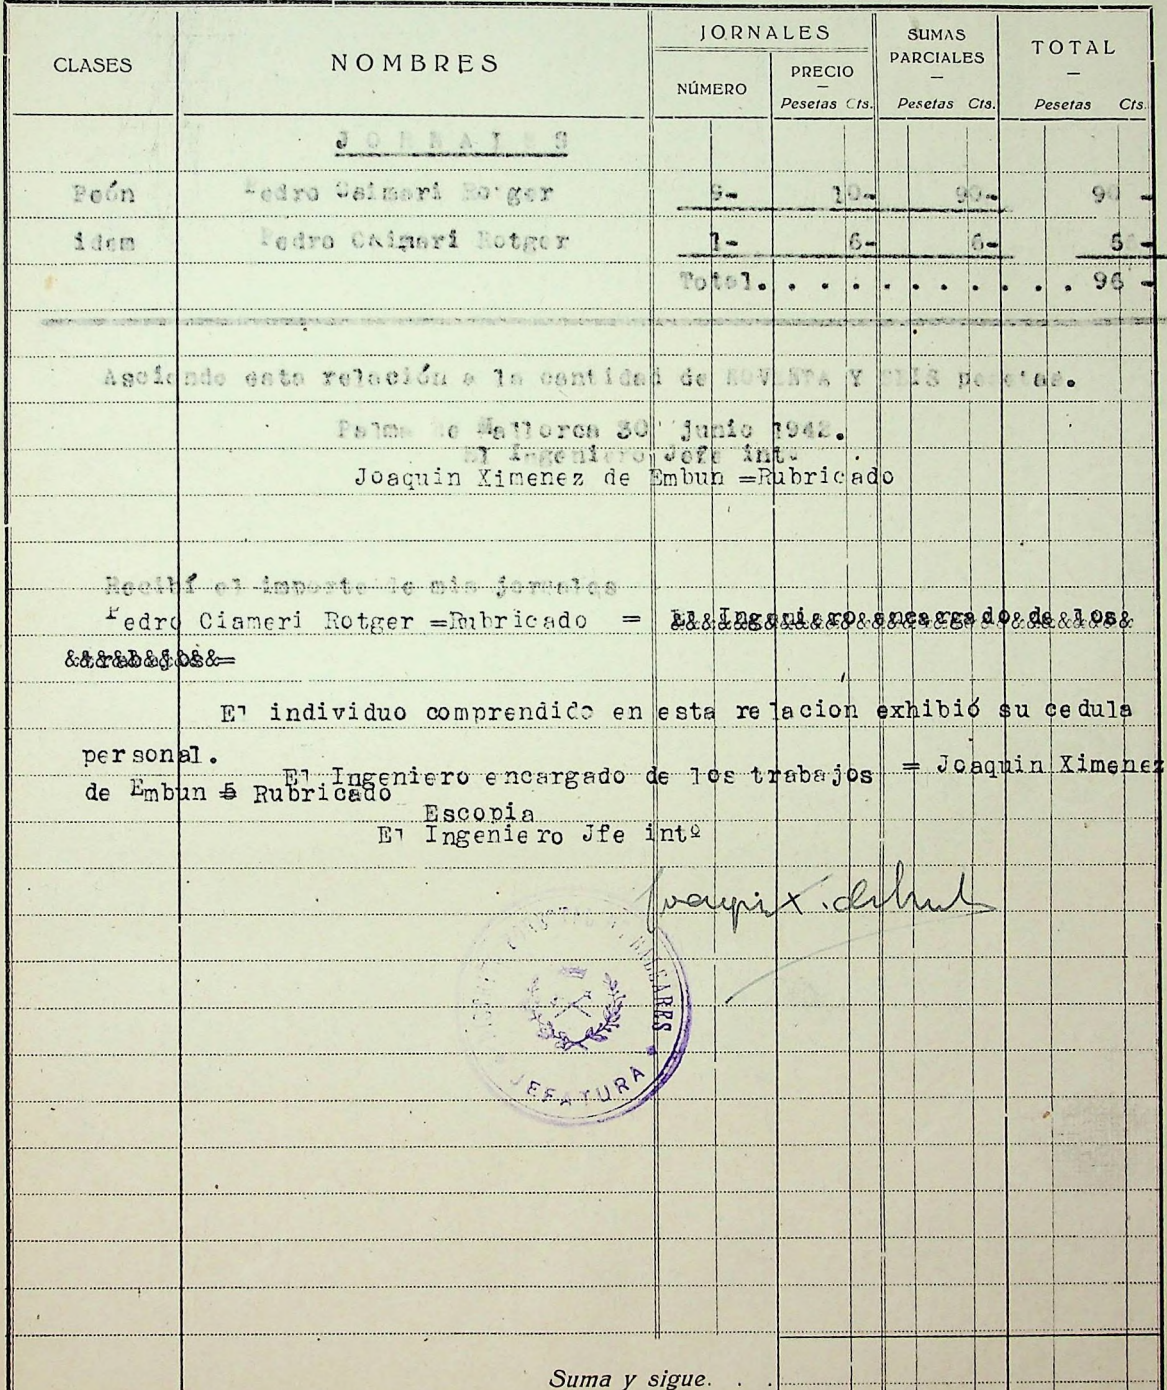 CLASES NOMBRES JORNALES NÚMERO PRECIO — Pesetas Cts. SUMAS PARCIALES — Pesetas Cts. TOTAL — Pesetas Cts.
JORNALES
Peón Pedro Caimari Rotger 9- 10- 90- 90 -
idem Pedro CAimari Rotger 1- 6- 6- 6 -
Total. . . . . . . . . . . . 96 -
Asciende esta relación a la cantidad de NOVENTA Y SEIS pesetas.
Palma de Mallorca 30 junio 1942.
El Ingeniero Jefe intº
Joaquin Ximenez de Embun =Rubricado
Recibí el importe de mis jornales
Pedro Ciameri Rotger =Rubricado = El Ingeniero encargado de los
trabajos=
El individuo comprendido en esta relacion exhibió su cedula
personal.
El Ingeniero encargado de los trabajos = Joaquin Ximenez
de Embun = Rubricado
Escopia
El Ingeniero Jfe intº
BALEARES
JEFATURA
Suma y sigue. . .